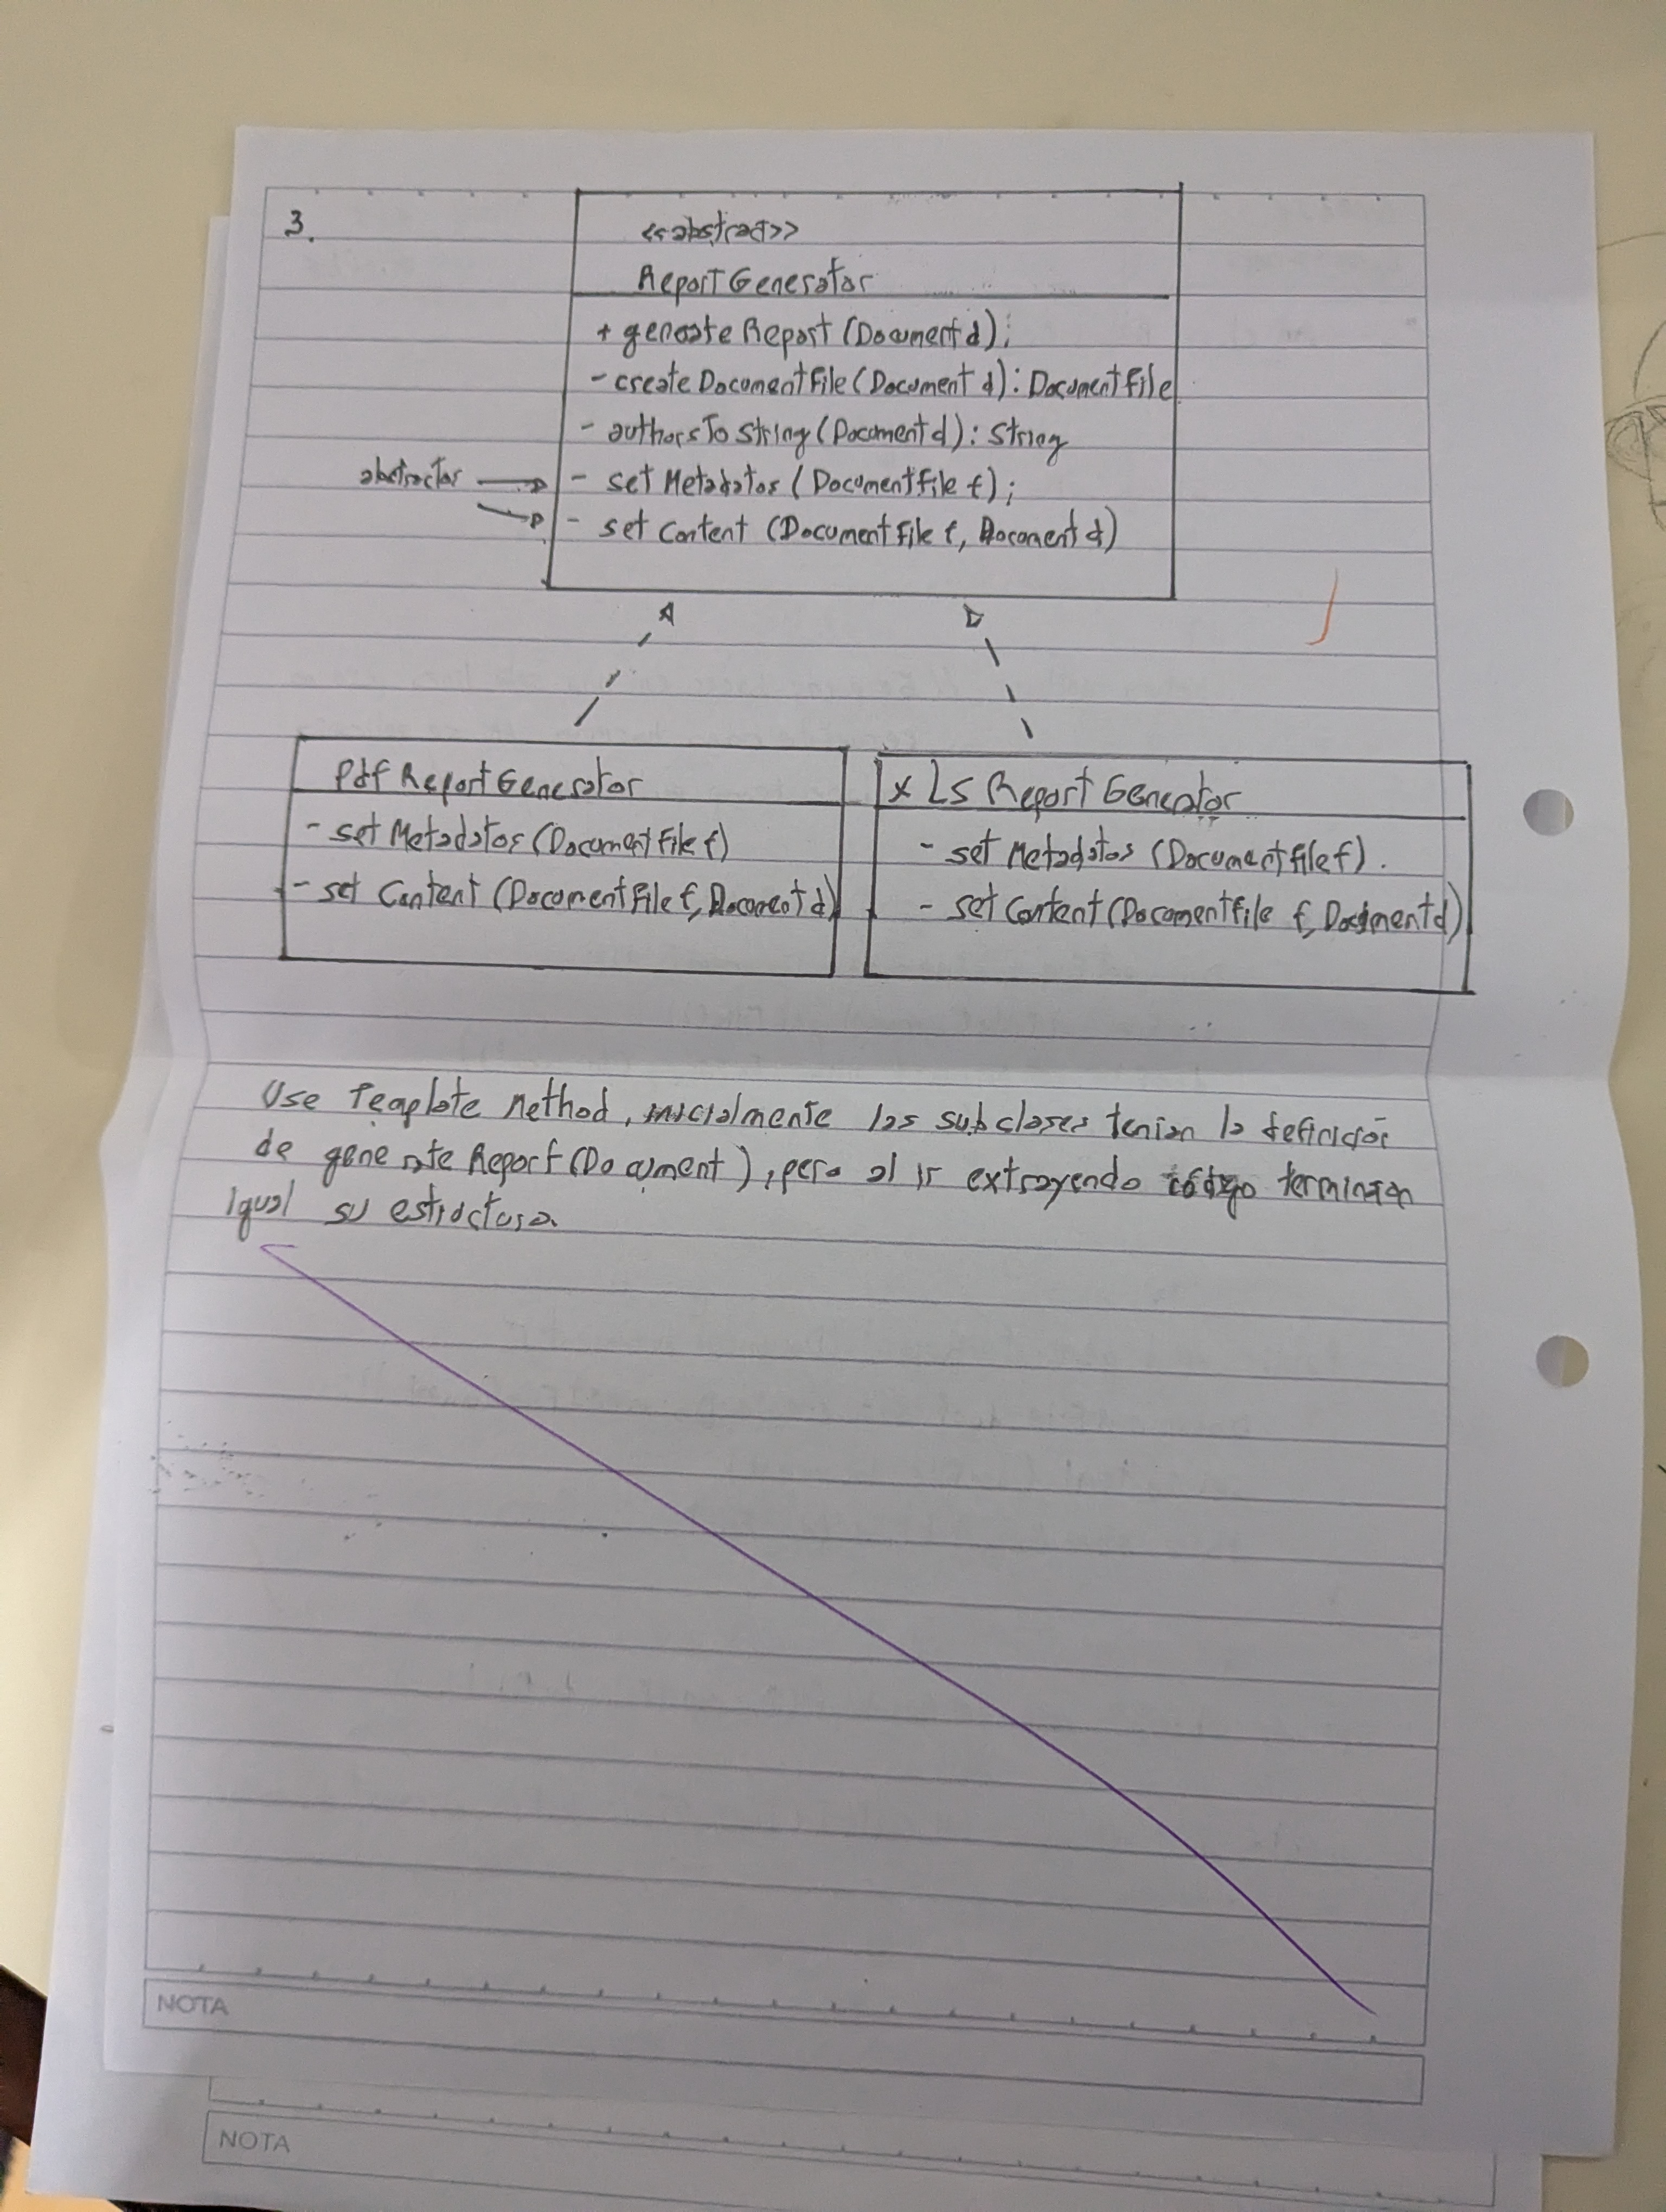 3.
<<abstract>>
Report Generator
+ generate Report (Document d);
- create Document File (Document d): Document File
- authors To String (Document d): String
abstractas - set Metadatos (Document file f);
- set Content (Document File f, Document d)
Pdf Report Generator
- set Metadatos (Document File f)
- set Content (Document File f, Document d)
xLs Report Generator
- set Metadatos (Document file f).
- set Content (Document file f, Document d)
Use Template Method, inicialmente las subclases tenian la definición
de generate Report (Document), pero al ir extrayendo código terminan
igual su estructura.
NOTA
NOTA